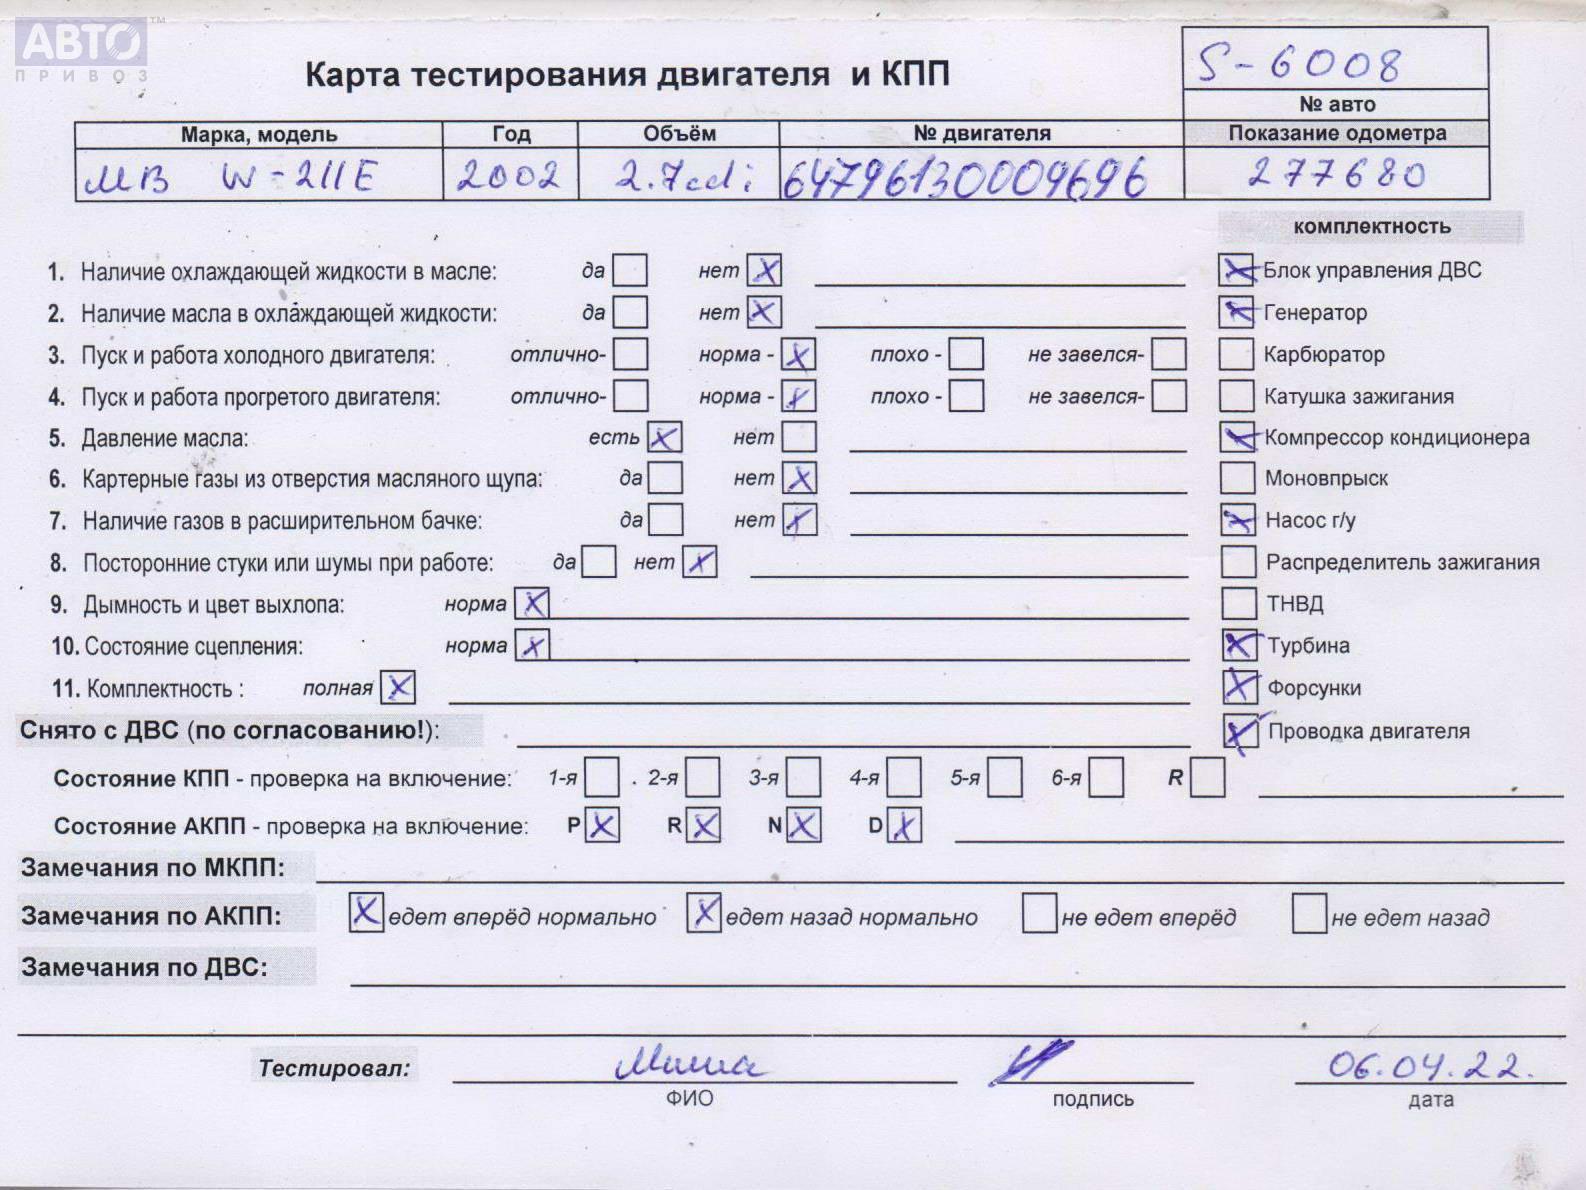 АВТО™
ПРИВОЗ
Карта тестирования двигателя и КПП
S-6008
№ авто
Марка, модель Год Объём № двигателя Показание одометра
МВ W-211E 2002 2.7cdi 64796130009696 277680
комплектность
1. Наличие охлаждающей жидкости в масле: да нет X Блок управления ДВС
2. Наличие масла в охлаждающей жидкости: да нет X Генератор
3. Пуск и работа холодного двигателя: отлично- норма - X плохо - не завелся- Карбюратор
4. Пуск и работа прогретого двигателя: отлично- норма - X плохо - не завелся- Катушка зажигания
5. Давление масла: есть X нет Компрессор кондиционера
6. Картерные газы из отверстия масляного щупа: да нет X Моновпрыск
7. Наличие газов в расширительном бачке: да нет X Насос г/у
8. Посторонние стуки или шумы при работе: да нет X Распределитель зажигания
9. Дымность и цвет выхлопа: норма X ТНВД
10. Состояние сцепления: норма X Турбина
11. Комплектность : полная X Форсунки
Снято с ДВС (по согласованию!): Проводка двигателя
Состояние КПП - проверка на включение: 1-я 2-я 3-я 4-я 5-я 6-я R
Состояние АКПП - проверка на включение: P X R X N X D X
Замечания по МКПП:
Замечания по АКПП: X едет вперёд нормально X едет назад нормально не едет вперёд не едет назад
Замечания по ДВС:
Тестировал: Миша 06.04.22.
ФИО подпись дата